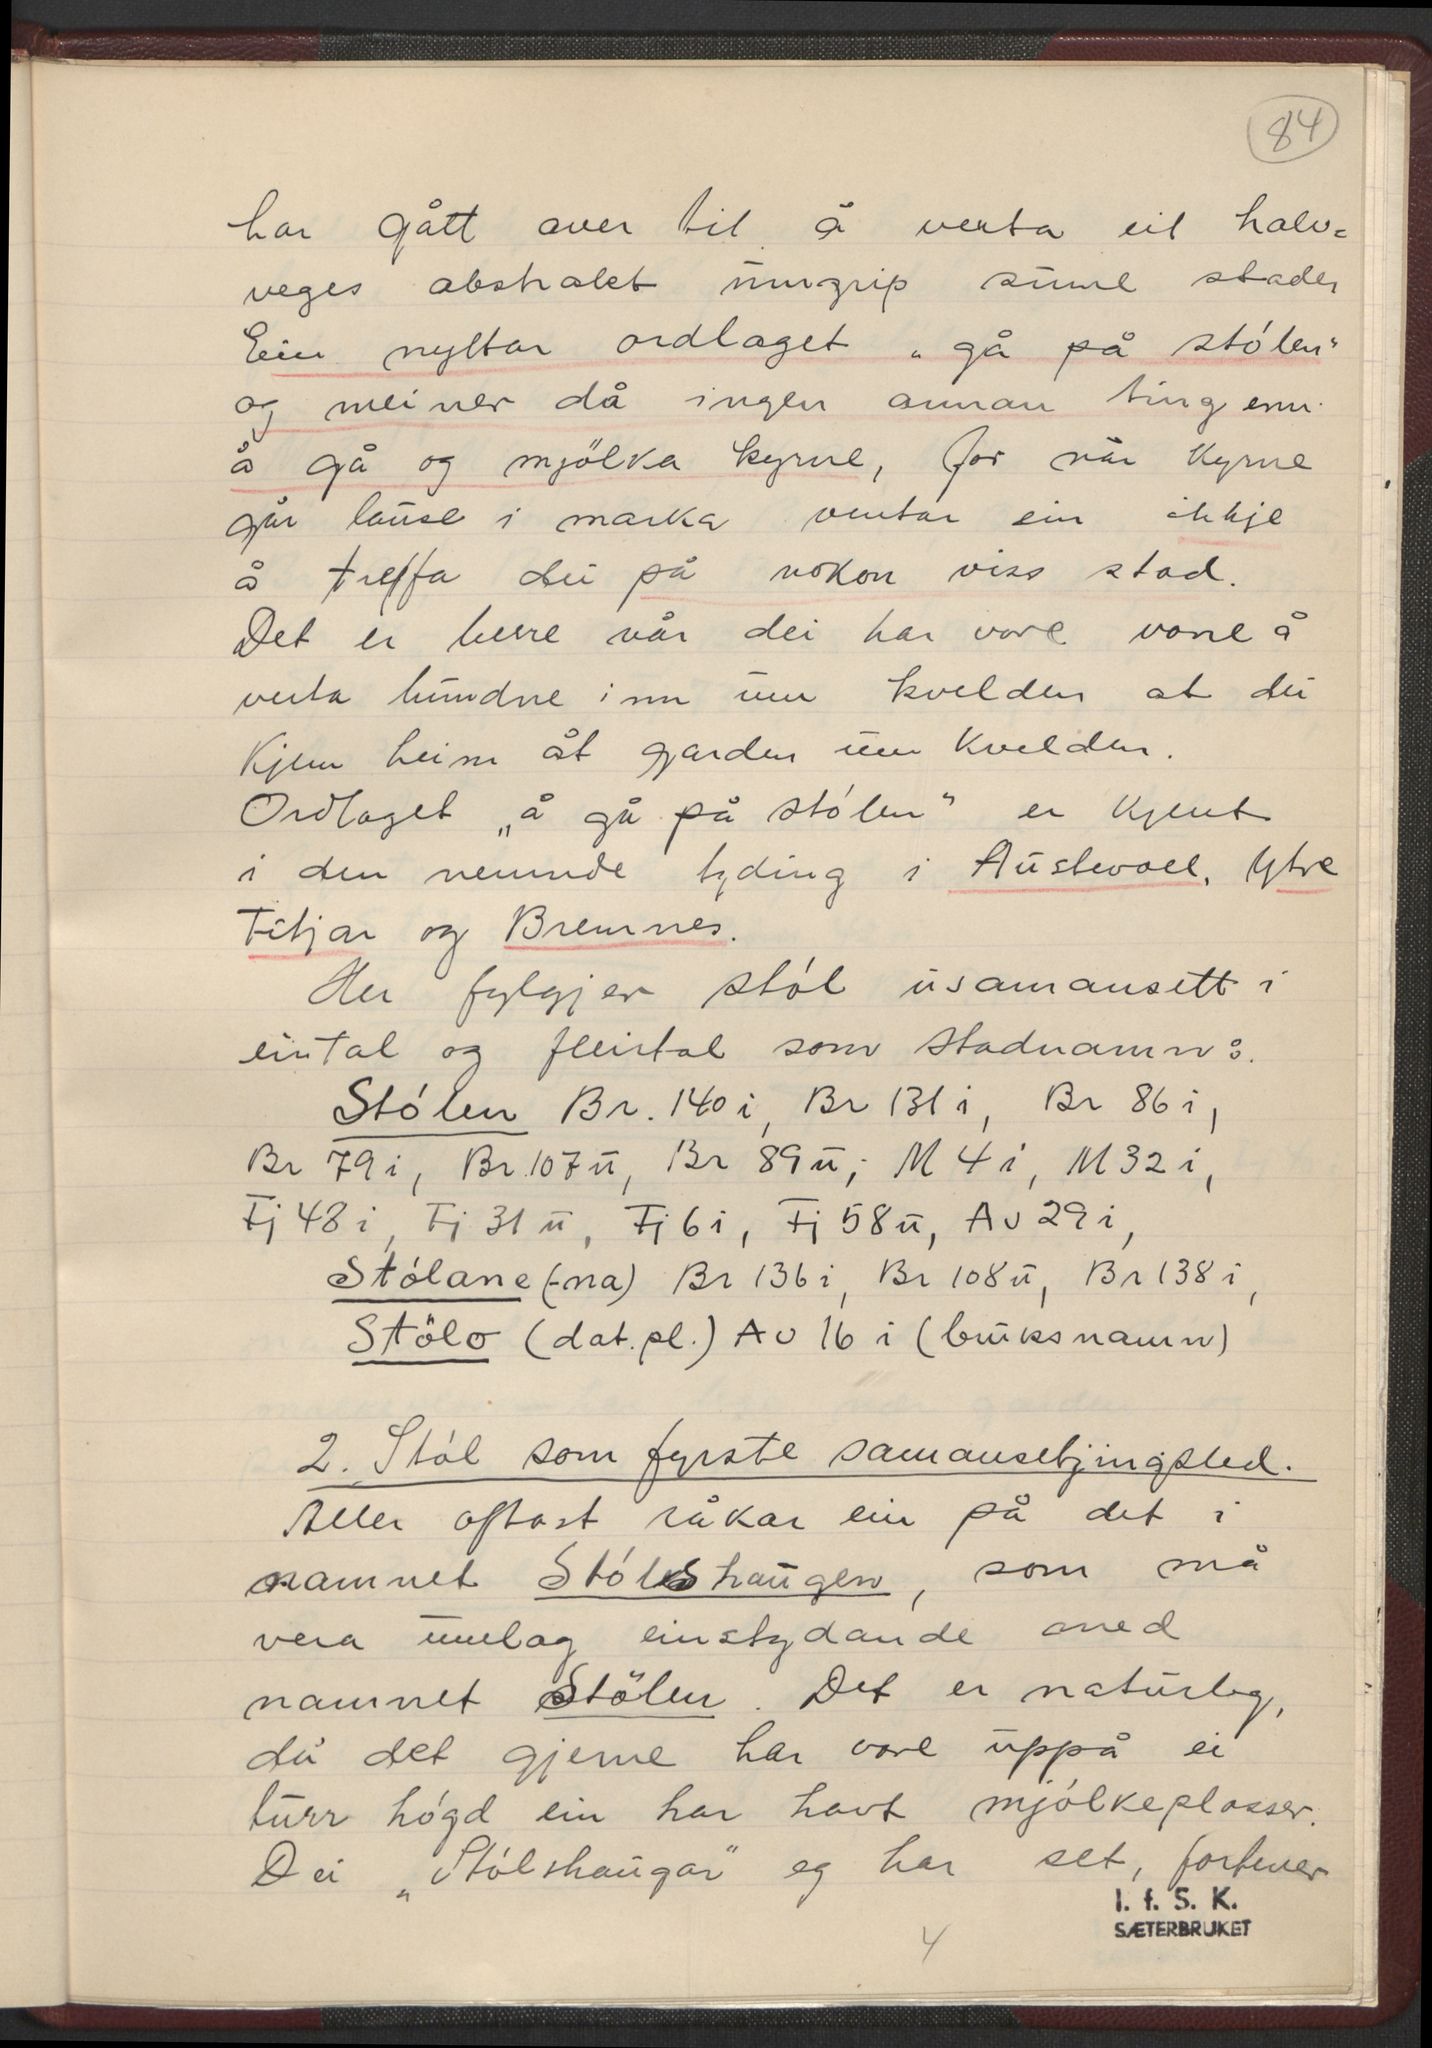 84
har gått over til å verta eit halv=
veges abstrakt umgrip sume stader
Ein nyttar ordlaget „gå på stólen"
og meiner då ingen annan ting enn
å gå og mjölka kyrne, for når kyrne
går lause i marka ventar ein ikkje
å treffa dei på nokon viss stad.
Det er berre når dei har vore vane å
verta bundne inn um kvelden at dei
kjem heim åt garden um kvelden.
Ordlaget „å gå på stólen" er kjent
i den nemnde tyding i Austevoll, Ytre
Fitjar og Bremnes.
Her fylgjer stól usamansett i
eintal og fleirtal som stadnamn:
Stólen Br. 140 i, Br 131 i, Br 86 i,
Br 79 i, Br 107 u, Br 89 u; M 4 i, M 32 i,
Fj 48 i, Fj 31 u, Fj 6 i, Fj 58 u, Au 29 i,
Stólane (-na) Br 136 i, Br 108 u, Br 138 i,
Stölo (dat. pl.) Au 16 i (bruksnamn)
2. Stól som fyrste samansetjingsled.
Aller oftast råkar ein på det i
namnet Stólshaugen, som må
vera umlag einstydande med
namnet Stölen. Det er naturleg,
då det gjerne har vore uppå ei
turr högd ein har havt mjólkeplasser.
Dei „Stólshaugar" eg har set, fortener
4
I. f. S. K.
SÆTERBRUKET